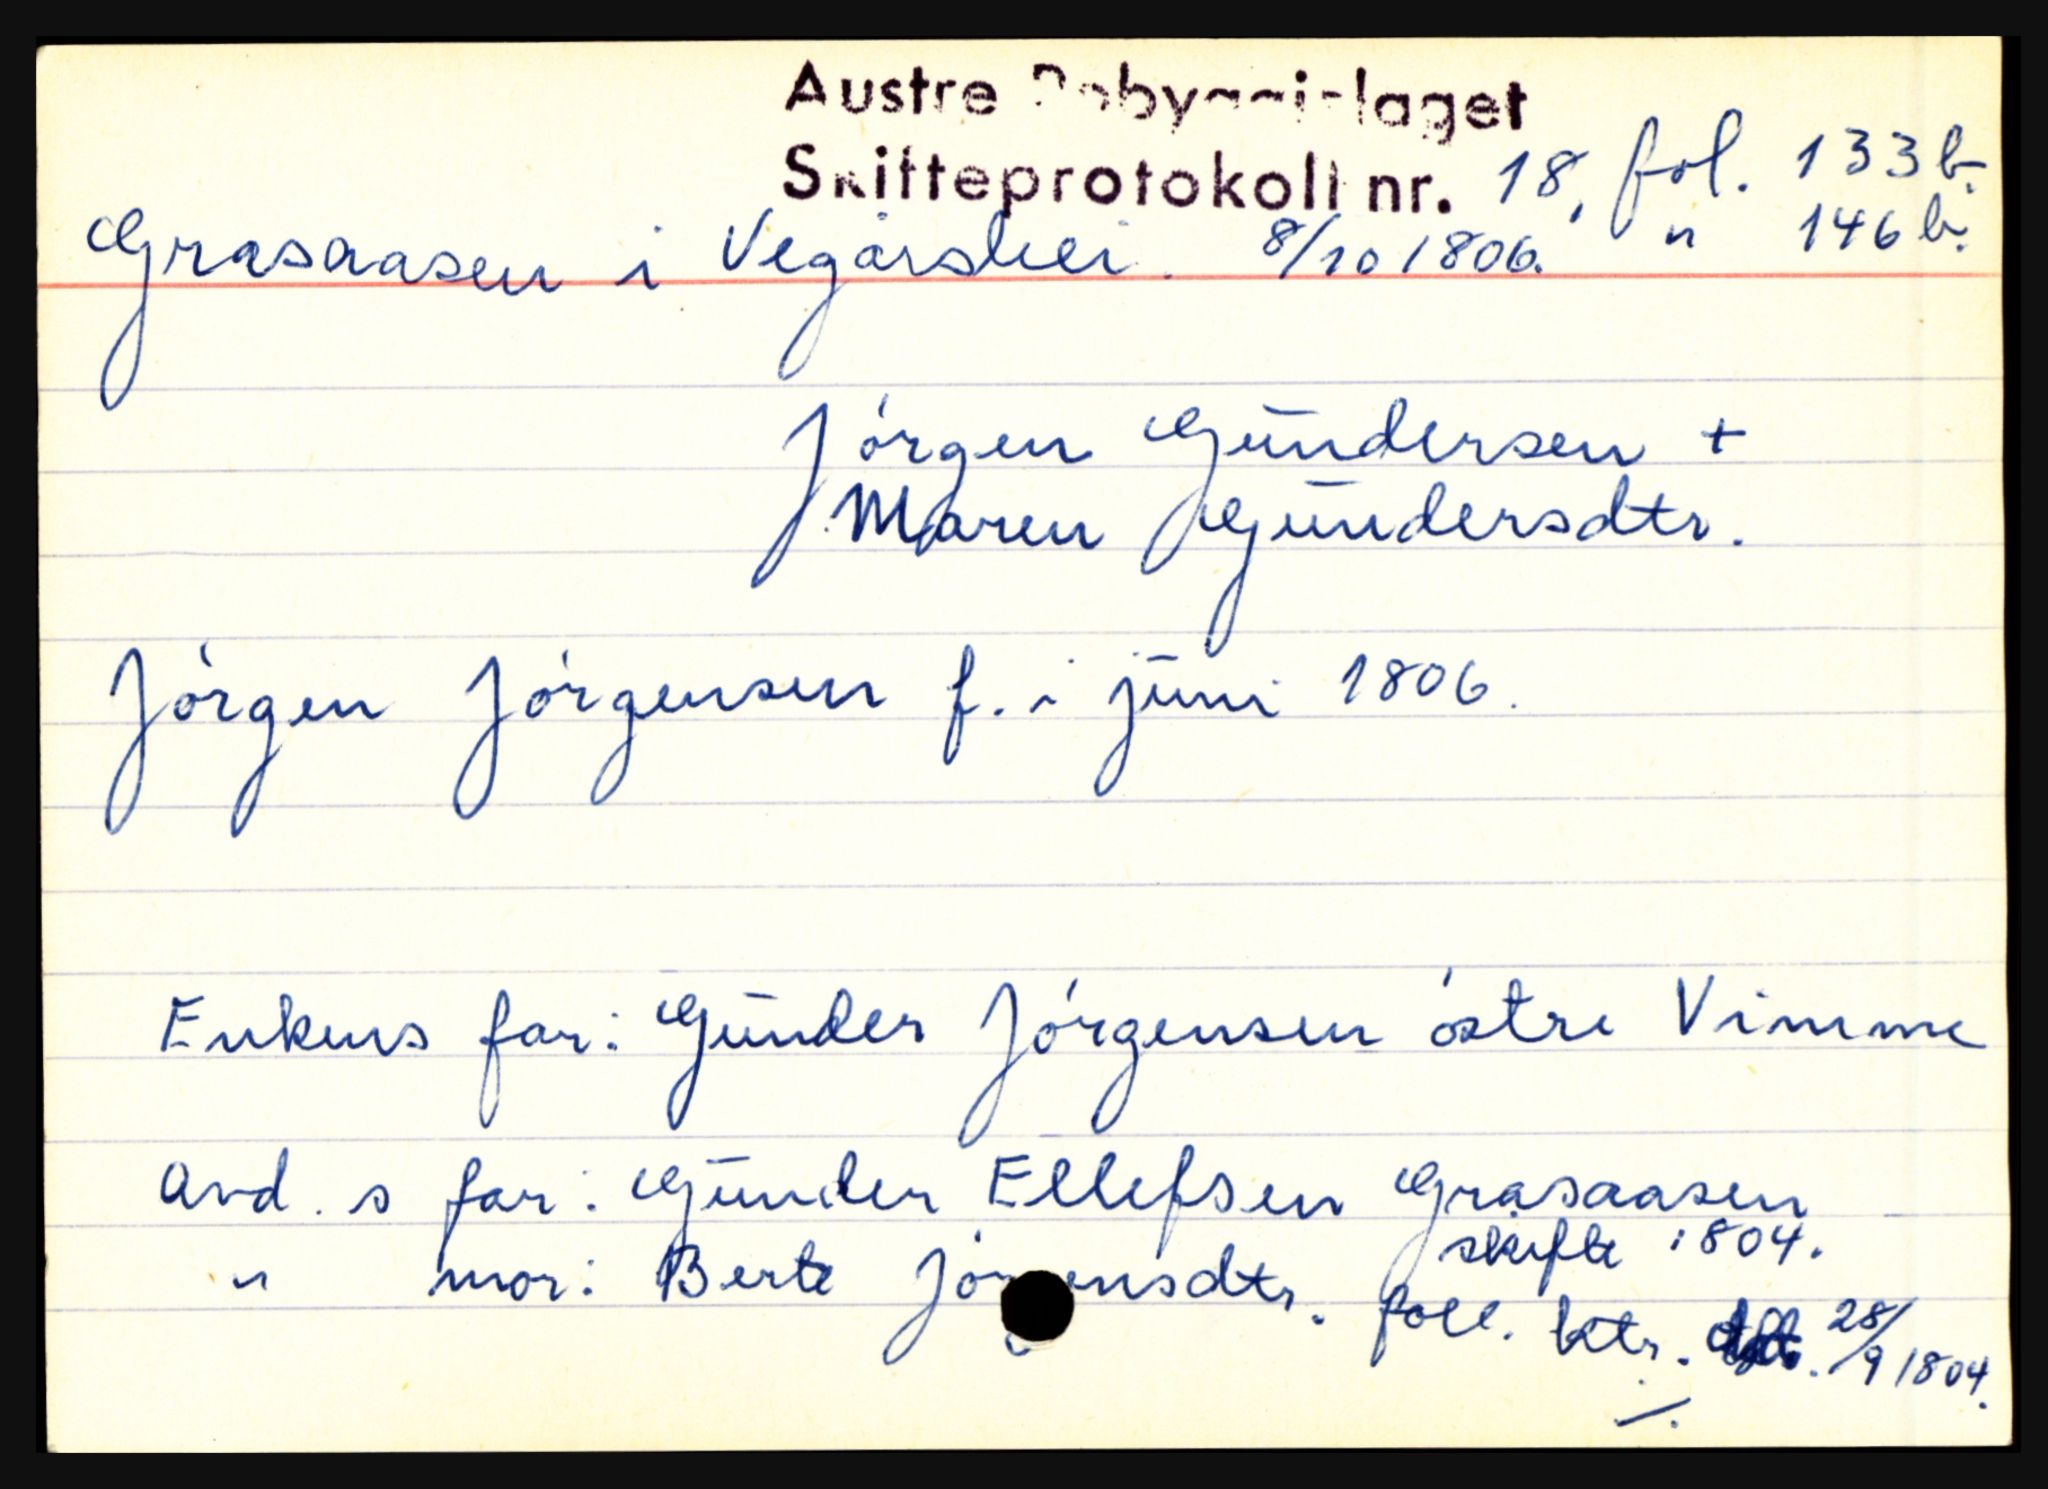 Austre Robyggjelaget
Skifteprotokoll nr. 18, fol. 133 b.
Grasaasen i Vegårshei. 8/10 1806. " 146 b.
Jörgen Gundersen +
Maren Gundersdtr.
Jörgen Jörgensen f. i juni 1806.
Enkens far: Gunder Jörgensen östre Vimme
Avd. s far: Gunder Ellefsen Grasaasen
skifte 1804.
" mor: Berte Jörgensdtr. ktr. 28/9 1804.